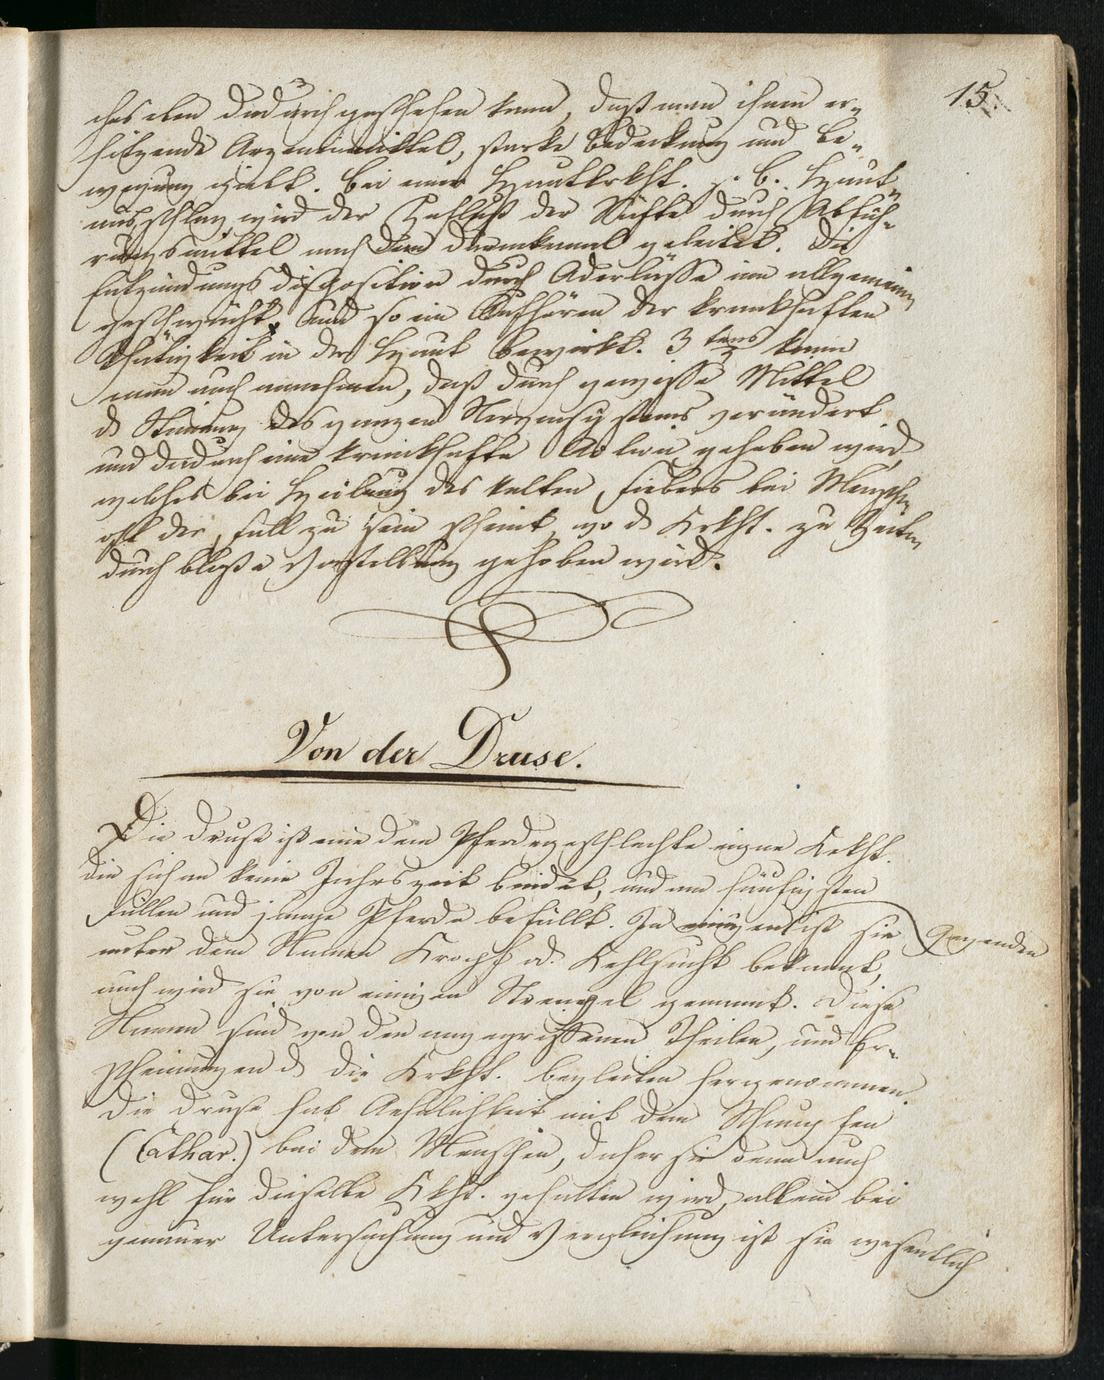 15.
ches eben dadurch geschehen kann, daß man ihnen er-
hitzende Arzeneimittel, starke Bedeckung und Be-
wegung giebt. Bei einer Hautkrkht. z. B. Haut-
ausschlag wird der Zufluß der Säfte durch Abfüh-
rungsmittel nach dem Darmkanal geleitet. Die
Entzündungsdisposition durch Aderlässe im allgemeinen
geschwächt, und so ein Aufhören der krankhaften
Thätigkeit in der Haut bewirkt. 3tens kann
man auch annehmen, daß durch gewisse Mittel
d. Stimung des ganzen Nervensystems verändert
und dadurch eine krankhafte Action gehoben wird,
welches bei Heilung des kalten Fiebers bei Menschen
oft der Fall zu sein scheint, wo d. Krkht. zu Zeiten
durch bloße Vorstellung gehoben wird.
Von der Druse.
Die Druse ist eine dem Pferdegeschlechte eigne Krkht.
die sich an keine Jahrszeit bindet, und am häufigsten
Fullen und junge Pferde befällt. In einigen Gegenden ist sie
unter dem Namen Kropf od. Kehlsucht bekannt,
auch wird sie von einigen Strengel genannt. Diese
Namen sind von den angegriffenen Theilen, und Er-
scheinungen d. die Krkht. begleiten hergenommen.
Die Druse hat Aehnlichkeit mit dem Schnupfen
(Cathar.) bei dem Menschen, daher sie denn auch
wohl für dieselbe Krkht. gehalten wird, allein bei
genauer Untersuchung und Vergleichung ist sie wesentlich